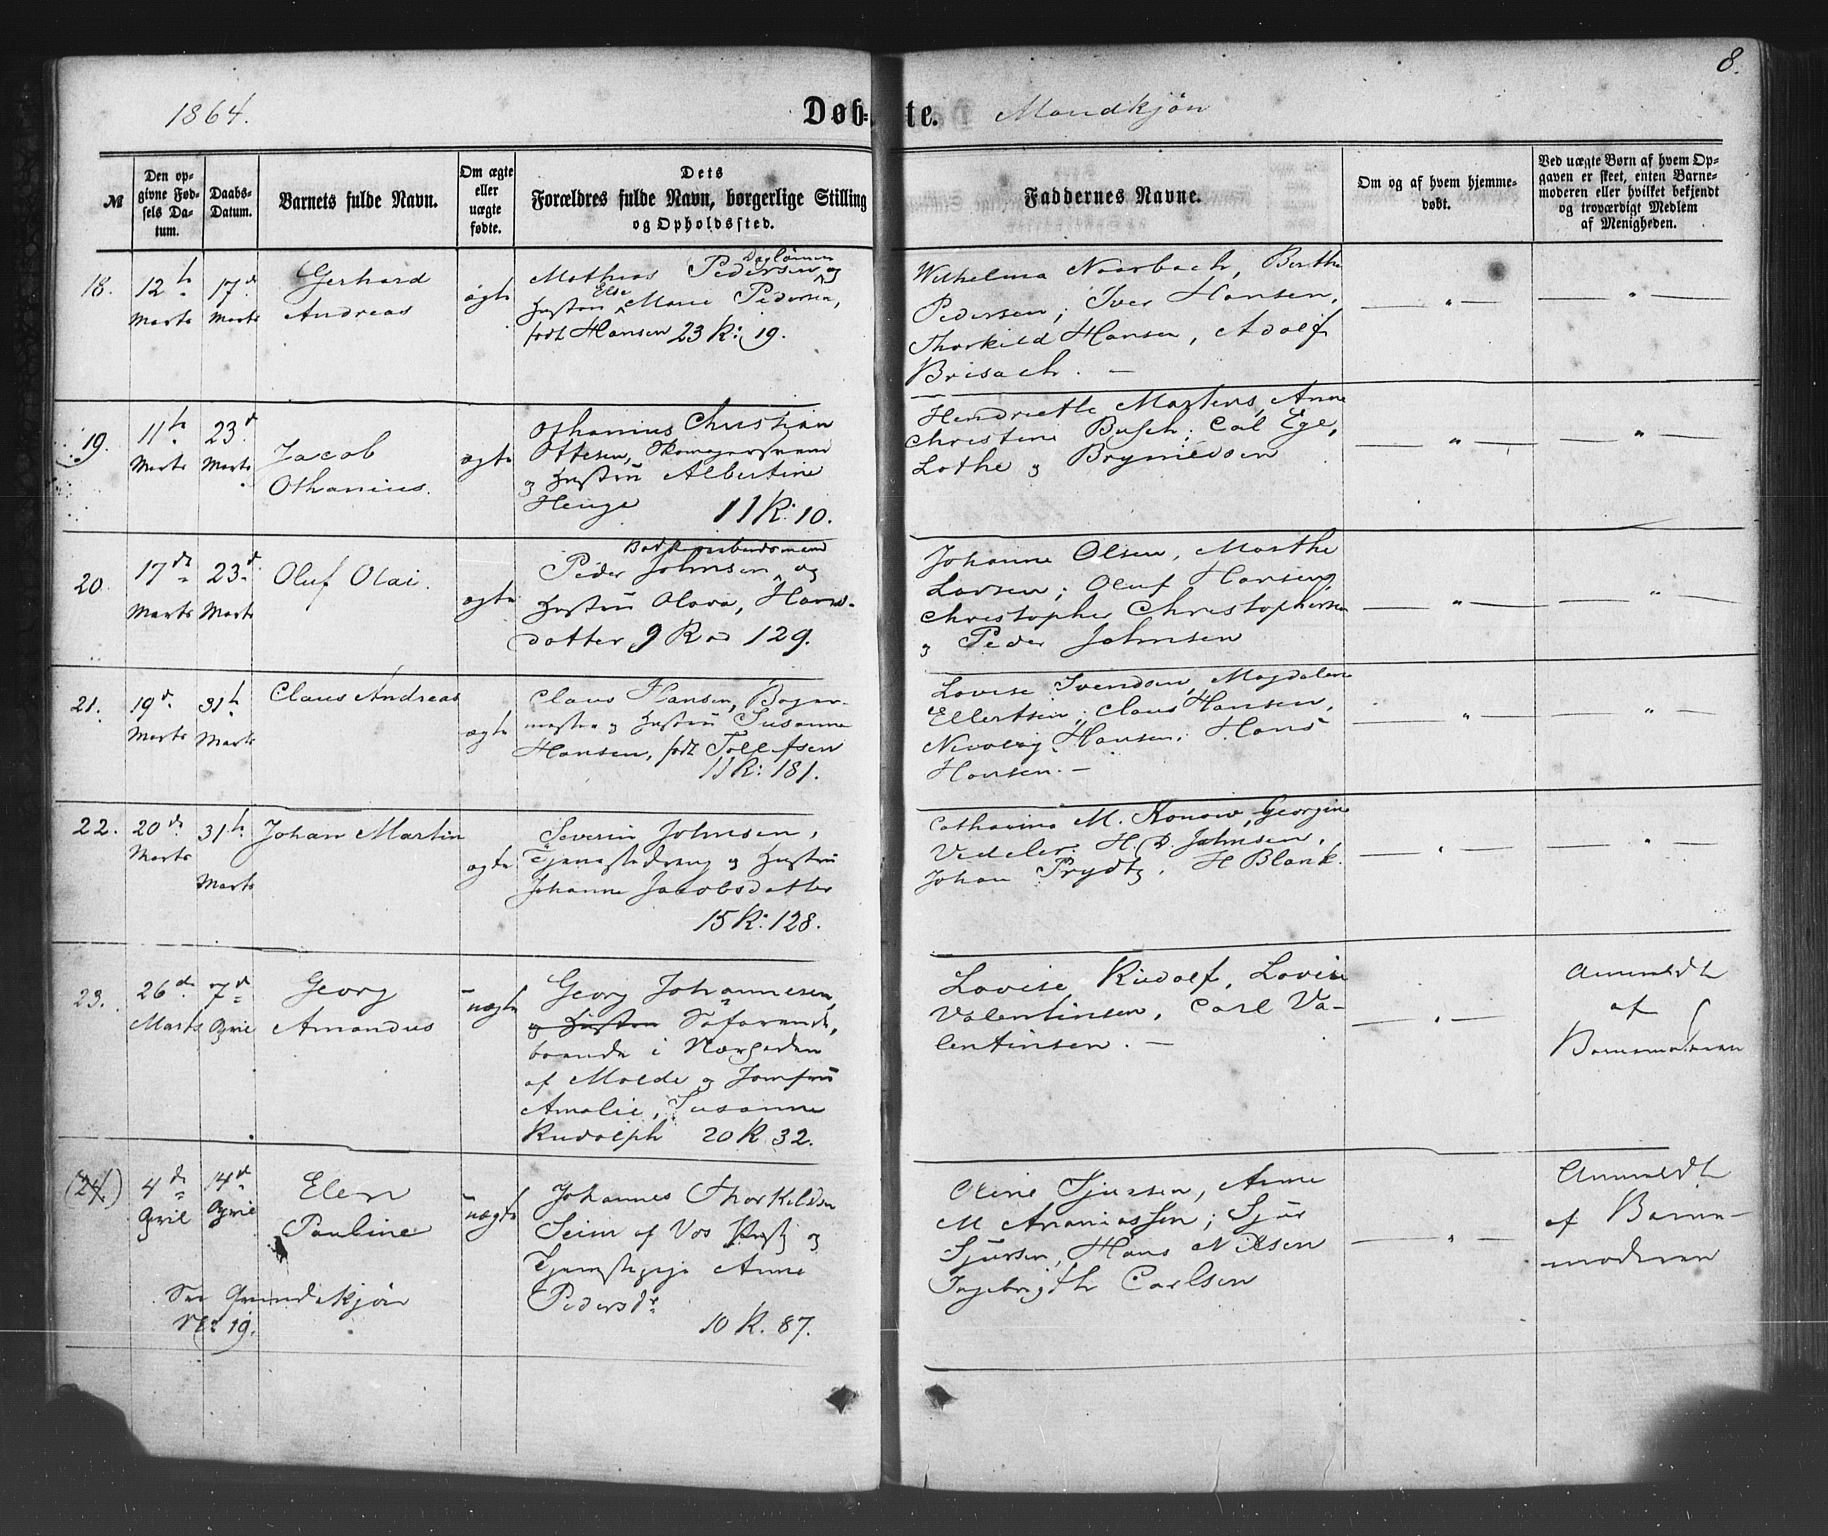 8.
1864.
Døbte.
Mandkjøn
№
Den opgivne Fødsels Datum.
Daabs-Datum.
Barnets fulde Navn.
Om ægte eller uægte fødte.
Dets
Forældres fulde Navn, borgerlige Stilling
og Opholdssted.
Faddernes Navne.
Om og af hvem hjemmedøbt.
Ved uægte Børn af hvem Opgaven er skeet, enten Barnemoderen eller hvilket bekjendt og troværdigt Medlem af Menigheden.
18.
12te Marts
17de Marts
Gerhard
Andreas
ægte
Mathias Pedersen Daglønner og
Hustru Else Marie Pedersen,
født Hansen 23 R: 19.
Wilhelmina Naarbach, Berthe
Pedersen; Iver Hansen,
Thorkild Hansen, Adolf
Brisach. —
— " —
— " —
19.
11te Marts
23de Marts
Jacob
Othanius.
ægte
Othanius Christian
Ottesen, Skomagersvend
og Hustru Albertine
Henge 11 R: 10.
Hendriette Martens, Anne
Christine Busch; Carl Ege,
Lothe og Brynildsen
— " —
— " —
20.
17de Marts
23de Marts
Oluf Olai.
ægte
Peder Johnsen, og
Hustru Olava, Hans-
datter, 9 Rod 129.
Johanne Olsen, Marthe
Larsen; Oluf Hansen,
Christopher Christophersen
og Peder Johnsen
— " —
— " —
21.
19de Marts
31te Marts
Claus Andreas
ægte
Claus Hansen, Bager-
mester og Hustru Susanne
Hansen, født Tollefsen
11 R: 181.
Lovise Svendsen, Magdalene
Ellertsen; Claus Hansen,
Nicolay Hansen, Hans
Hansen. —
— " —
— " —
22.
20de Marts
31te Marts
Johan Martin
ægte
Severin Johnsen,
Tjenestedreng og Hustru
Johanne Jacobsdatter
15 R: 128.
Catharina M. Konow, Georgine
Vedeler, H. D. Jahnsen,
Johan Prydtz, H Blank.
— " —
— " —
23.
26de Marts
7de April
Georg
Amandus
uægte
Georg Johannesen,
og Hustru Søfarende,
boende i Nærheden
af Molde og Jomfru
Amalie, Susanne
Rudolph 20 R. 32.
Lovise Rudolf, Lovise
Valentinsen, Carl Va-
lentinsen. —
— " —
Anmeldt
af
Barnemoderen
(24)
4de April
14de April
Elen
Pauline
uægte
Johannes Thorkildsen
Seim af Vos Prstgj og
Tjenestepige Anne
Pedersdr
10 R. 87.
Oline Sjursen, Anne
M Ananiassen; Sjur
Sjursen, Hans Nilsen
Ingebrigth Carlsen
— " —
Anmeldt
af Barne-
moderen
See Qvindekjøn
No 19.